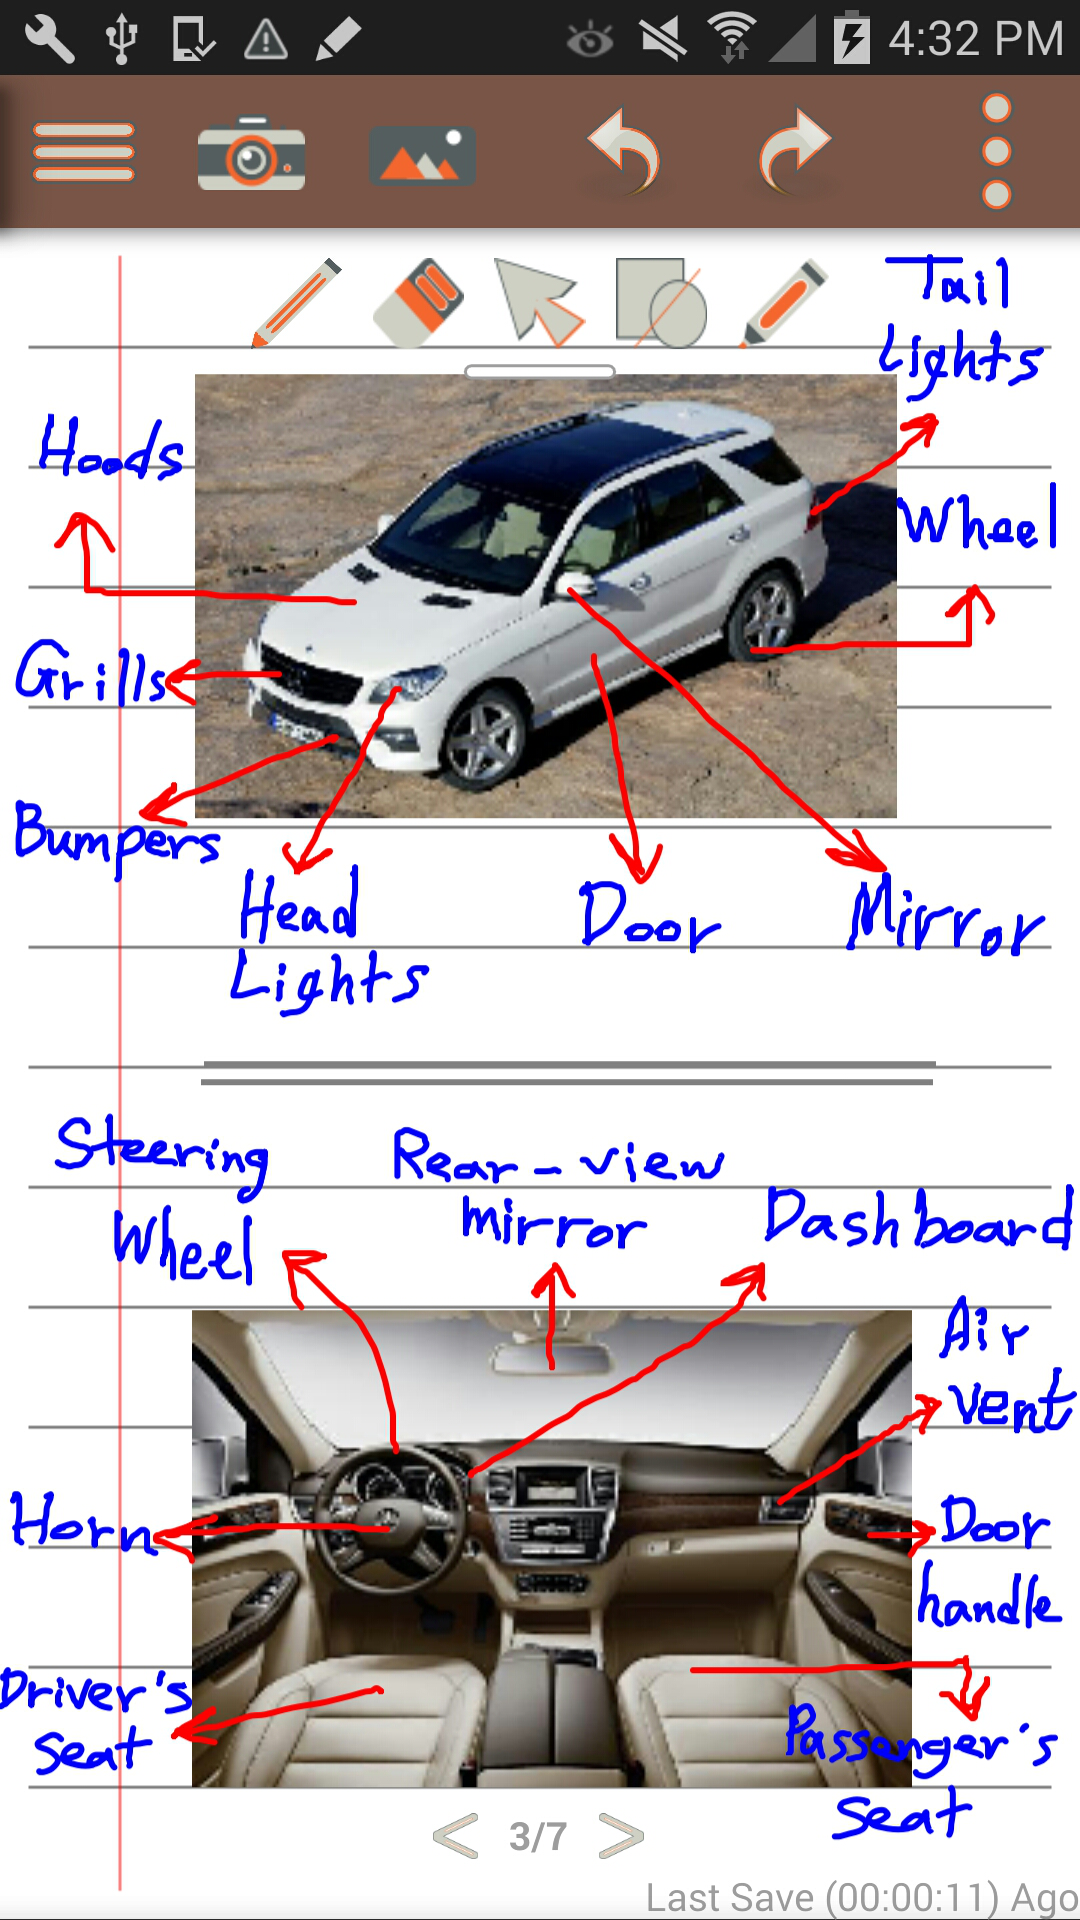 4:32 PM
Tail
Lights
Hoods
Wheel
Grills
Bumpers
Head
Lights
Door
Mirror
Steering
Wheel
Rear-view
mirror
Dashboard
Air
vent
Horn
Door
handle
Driver's
seat
Passenger's
seat
3/7
Last Save (00:00:11) Ago